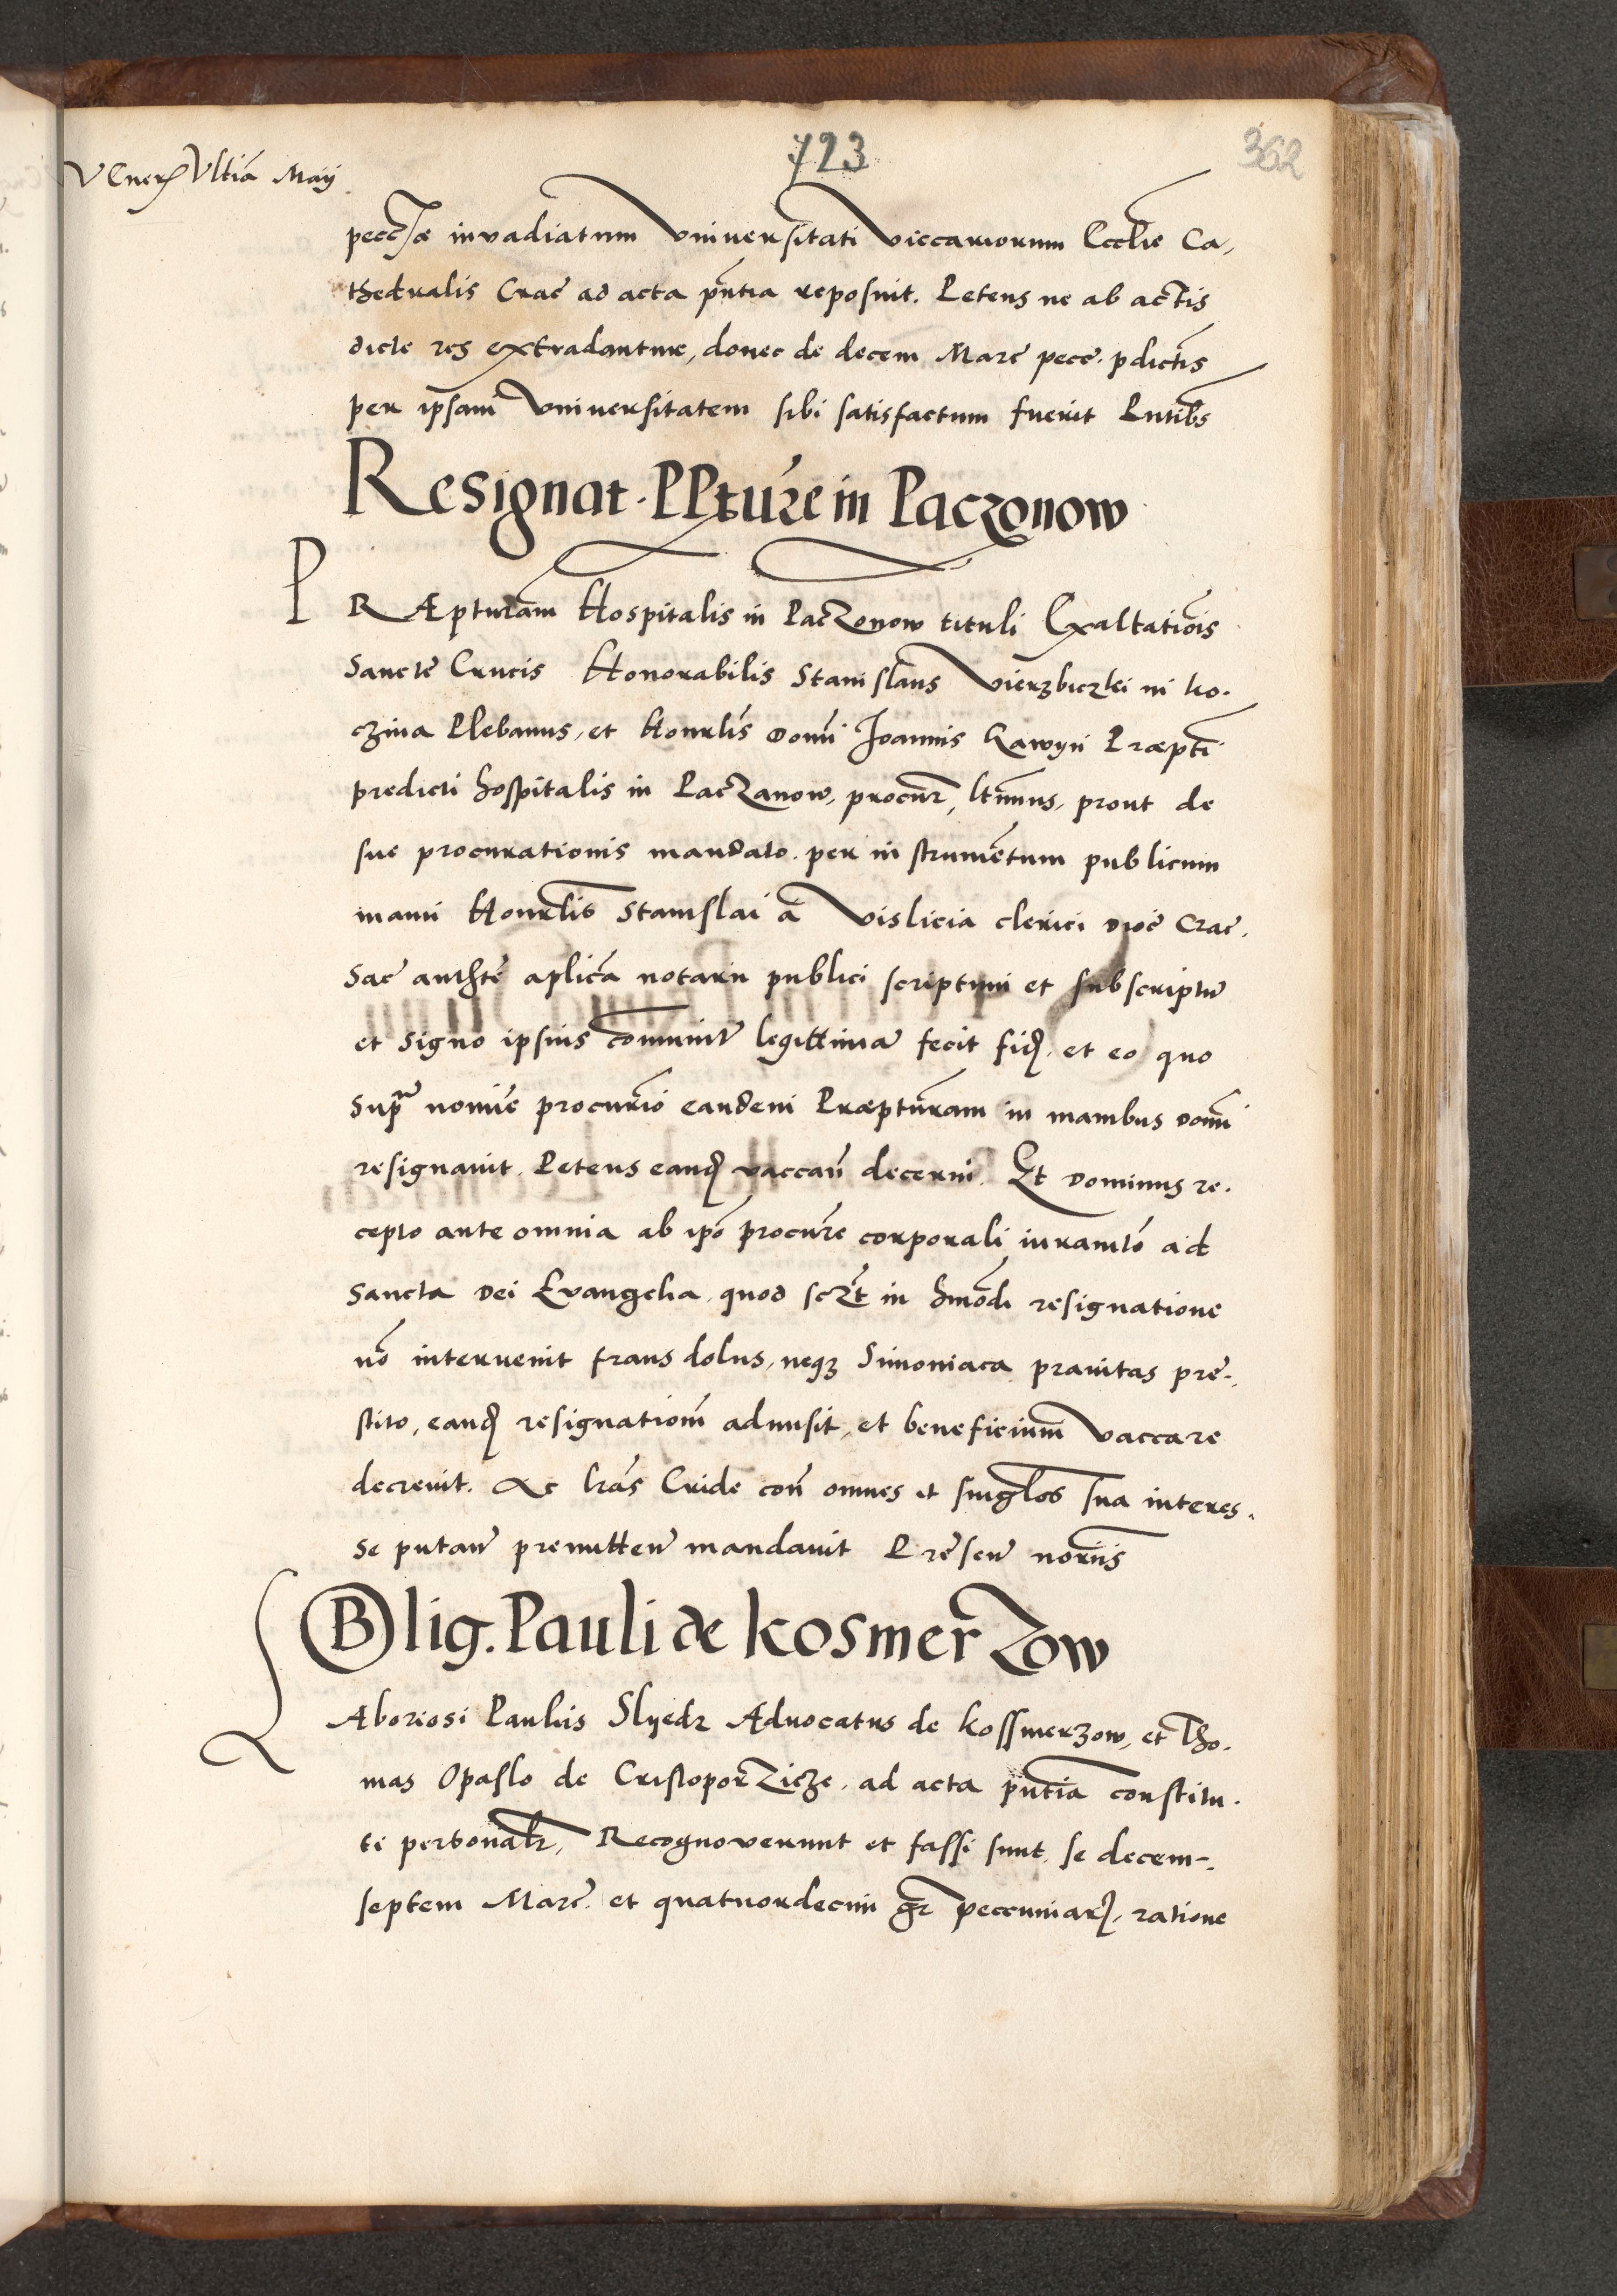 723
362
VEner Ultia Maij
peccȩ invadiatum Vniversitati Viccariorum Ecclie Ca,
thedralis Crac ad acta pntia reposuit. Petens ne ab actis
dicte res extradantur, donec de decem Marc pecc. pdictis
per ipsam Vniversitatem sibi satisfactum fuerit Pntibs
Resignat. PPture in Paczonow
PRÆpturam Hospitalis in PacZonow tituli Exaltatiois
Sancte Crucis Honorabilis Stanislaus Vierzbiczki in ko.
czina Plebanus, et Honrlis Domi Joannis Gawyn Præpti
predicti hospitalis in PacZanow, procur, ltimus, prout de
sue procurationis mandato. per instrumetum publicum
manu Honrlis Stanislai a Vislicia clerici dioc Crac.
Sac authte aplica notarii publici scriptum et subscriptu
et signo ipsius comunit legittima fecit fid. et eo quo
supra nomie procurio eandem Præpturam in manibus domi
resignavit. Petens eand vaccan decerni. Et Dominus re.
cepto ante omnia ab ipo procure corporali iuramto ad
Sancta Dei Evangelia, quod in hmodi resignatione
no intervenit fraus dolus, neqz Simoniaca pravitas pre.,
stito, eand resignatiom admisit, et beneficium Vaccare
decrevit. Ac lras Cride con omnes et singlos sua interes.
se putan premitten mandavit Presen noriis
OBlig. Pauli de kosmerZow
LAboriosi Paulus Slyedz Advocatus de kossmerzow, et Tho.
mas Opaslo de CristoporZicze. ad acta pntia constitu.
ti personalr, Recognoverunt et fassi sunt, se decem-.
septem Marc. et quatuordecim gr peccuniar, ratione